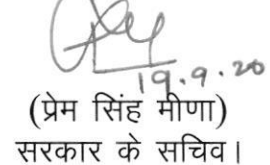 19.9.20
(प्रेम सिंह मीणा)
सरकार के सचिव।